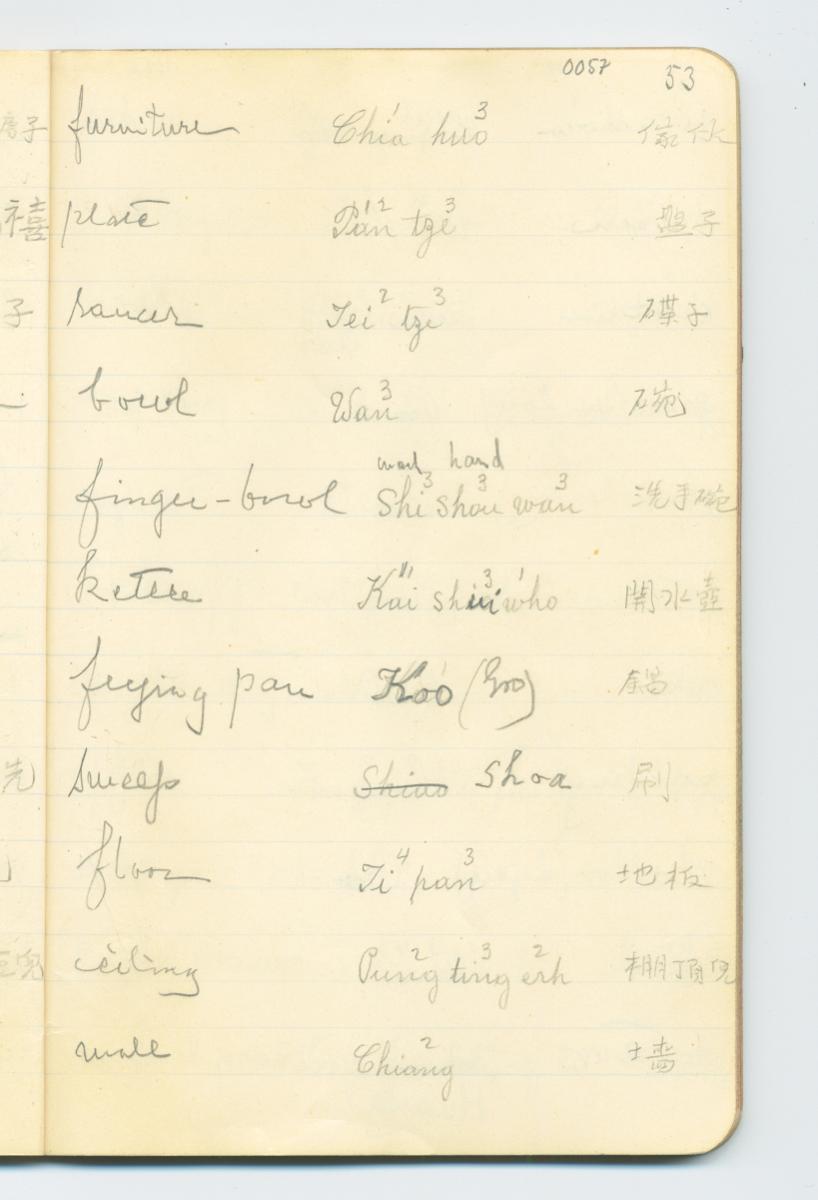 0057 53
furniture Chia¹ huo³ 傢伙
plate Pan² tze³ 盤子
saucer Tei² tze³ 碟子
bowl Wan³ 碗
wash hand
finger-bowl Shi³ shou³ wan³ 洗手碗
kettle Kai shui³ who 開水壺
frying pan Koo 鍋
sweep Shoa 刷
floor Ti⁴ pan³ 地板
ceiling Pung² ting³ erh² 棚頂兒
wall Chiang² 墻